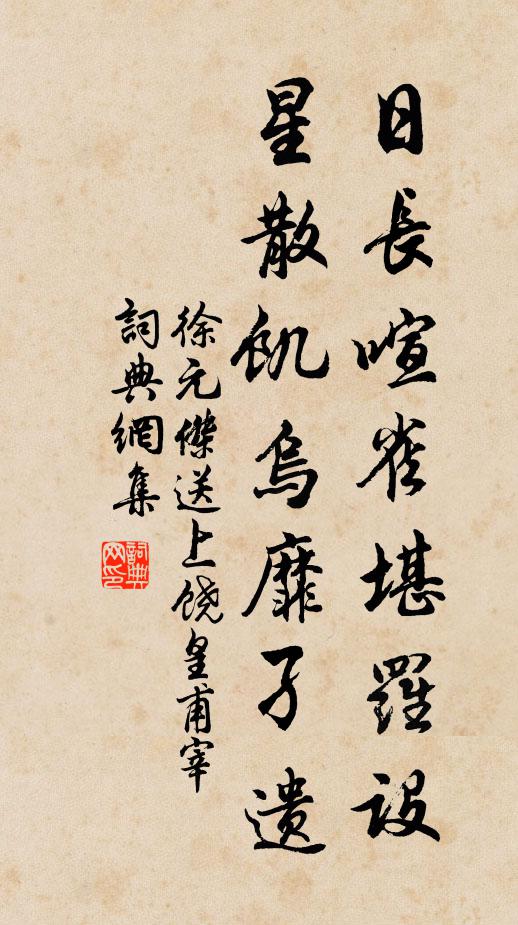 日長喧雀堪羅設
星散飢烏靡孑遺
徐元傑送上饶皇甫宰
詞典網集
詞典
网印